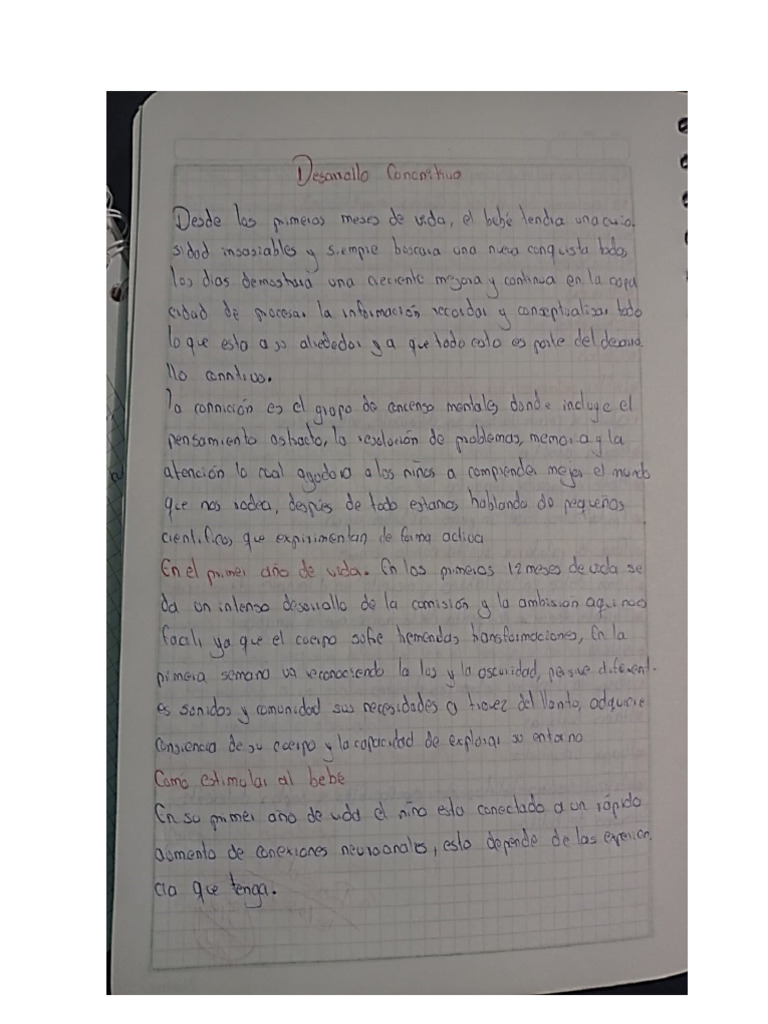 Desarrollo Concnitivo
Desde los primeros meses de vida, el bebé tendra una curio
sidad insasiables y siempre buscara una nueva conquista todos
los dias demostrará una creciente mejora y continua en la capa
cidad de procesar la información recordar y conceptualizar todo
lo que esta a su alrededor ya que todo esto es parte del desarro
llo connitivo.
la connición es el grupo de mentales donde incluye el
pensamiento astracto, la resolución de problemas, memoria y la
atención lo cual ayudara a los niños a comprender mejor el mundo
que nos rodea, despues de todo estamos hablando de pequeños
cientificos que expirimentan de forma activa
En el primer año de vida. En los primeros 12 meses de vida se
da un intenso desarrollo de la y la ambision aqui no es
facil, ya que el cuerpo sufre tremendas transformaciones, En la
primera semana va reconociendo la los y la oscuridad, persive diferent-
es sonidos y comunidad sus necesidades a travez del llanto, adquiere
consiencia de su cuerpo y la capacidad de explorar su entorno
Como estimular al bebé
En su primer año de vida el niño esta conectado a un rápido
aumento de conexiones neuroonales, esto depende de las experien
cia que tenga.